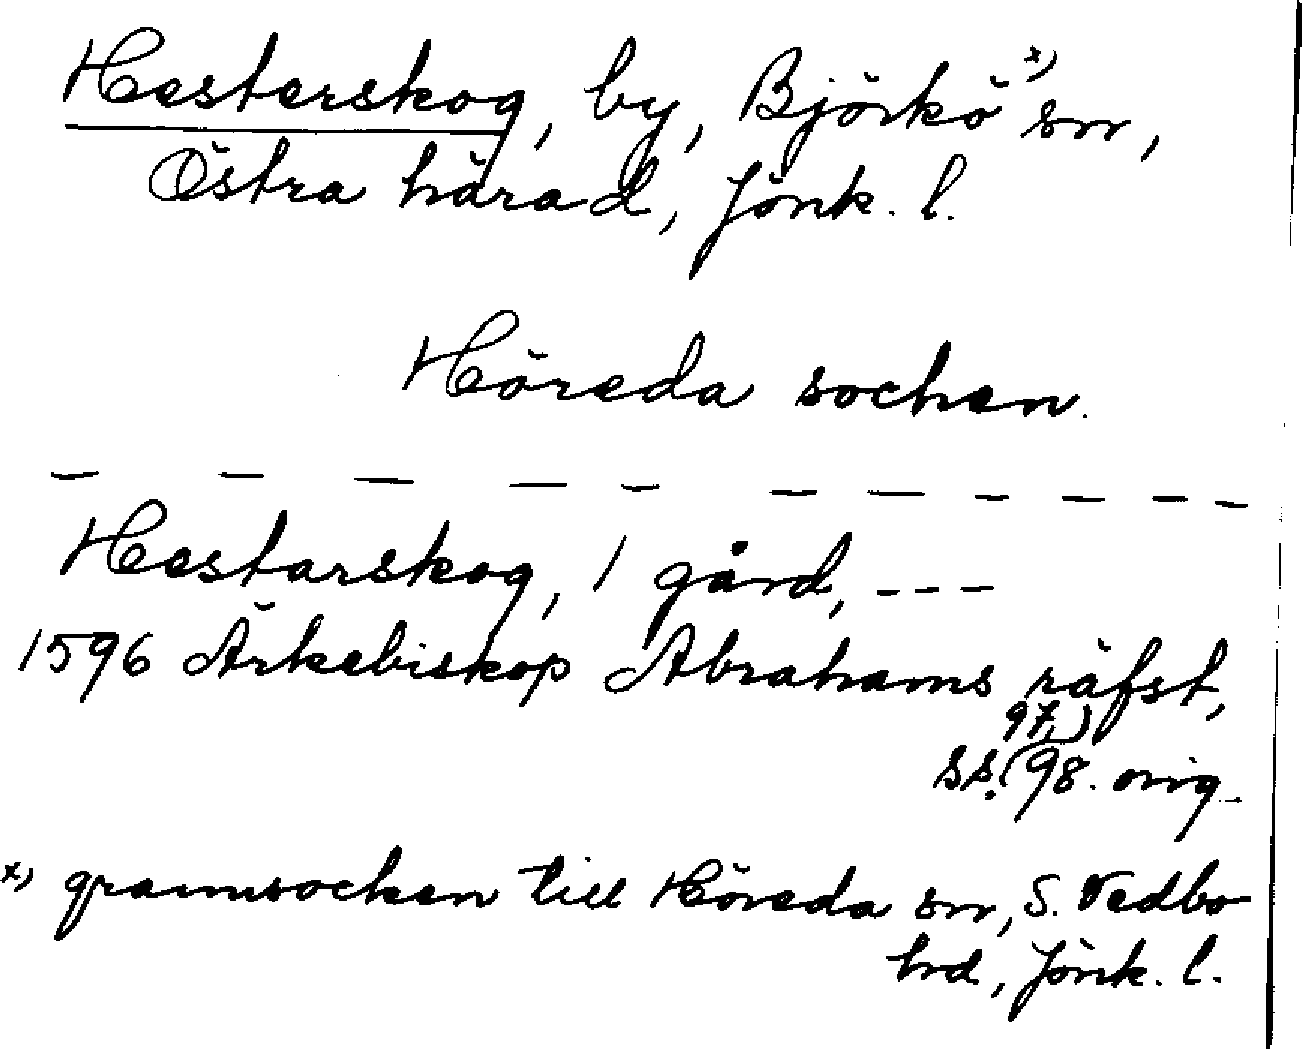 Hesterskog, by, Björkö x) sn,
Östra härad, Jönk. l.
Höreda socken.
— — — — — — — — — — —
Hestarskog, 1 gård, ---
1596 Ärkebiskop Abrahams räfst,
97,)
ss.(98. orig.
x) grannsocken till Höreda sn, S. Vedbo
hd, Jönk. l.